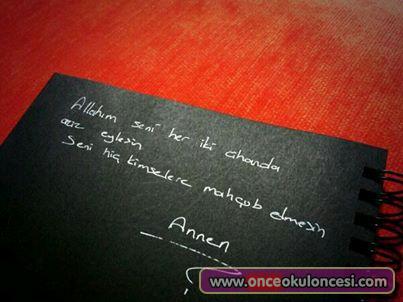 Allahım seni her iki cihanda
aziz eylesin
Seni hiç kimselere mahçub etmesin
Annen
www.onceokuloncesi.com